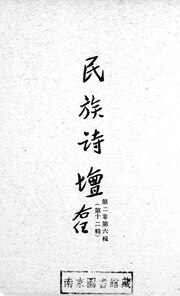 民族诗壇
右任
第二卷第六輯
(第十二輯)
南京圖書館藏